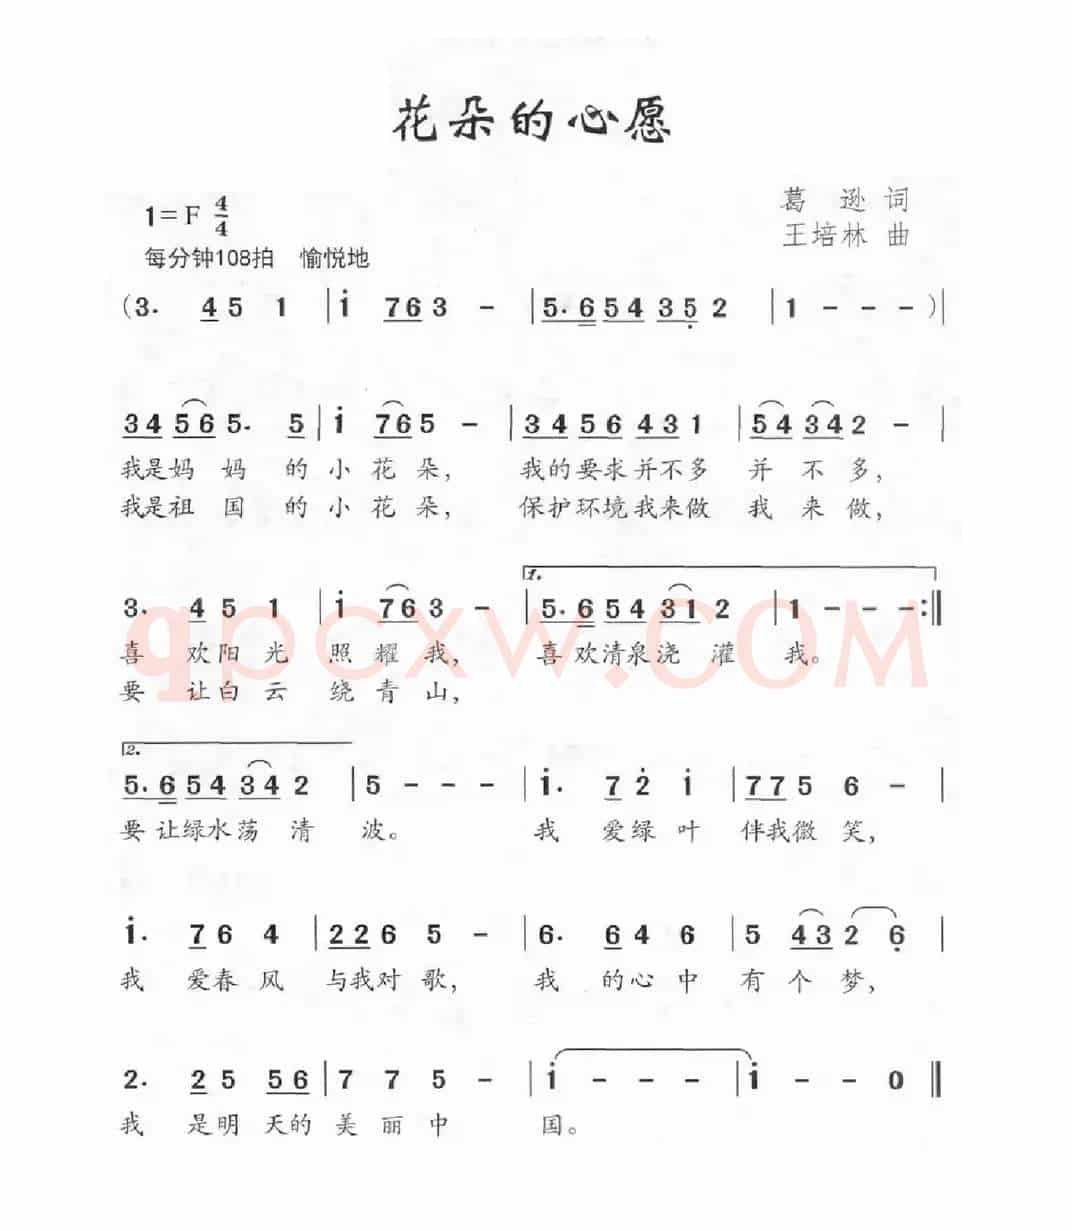 花朵的心愿
1=F 4/4
葛 逊 词
王培林 曲
每分钟108拍 愉悦地
(3. 4 5 1 | i 7 6 3 - | 5. 6 5 4 3 5 2 | 1 - - - )|
3 4 5 6 5. 5 | i 7 6 5 - | 3 4 5 6 4 3 1 | 5 4 3 4 2 - |
我是妈 妈 的 小 花 朵, 我的要求并不多 并 不 多,
我是祖 国 的 小 花 朵, 保护环境我来做 我 来 做,
1.
3. 4 5 1 | i 7 6 3 - | 5. 6 5 4 3 1 2 | 1 - - - :||
喜 欢阳 光 照 耀 我, 喜 欢清泉浇 灌 我。
要 让白 云 绕 青 山,
qpcxw.COM
2.
5. 6 5 4 3 4 2 | 5 - - - | i. 7 2 i | 7 7 5 6 - |
要 让绿水荡 清 波。 我 爱绿 叶 伴我微 笑,
i. 7 6 4 | 2 2 6 5 - | 6. 6 4 6 | 5 4 3 2 6 |
我 爱春 风 与我对 歌, 我 的心 中 有 个 梦,
2. 2 5 5 6 | 7 7 5 - | i - - - | i - - 0 ||
我 是明 天的 美 丽 中 国。